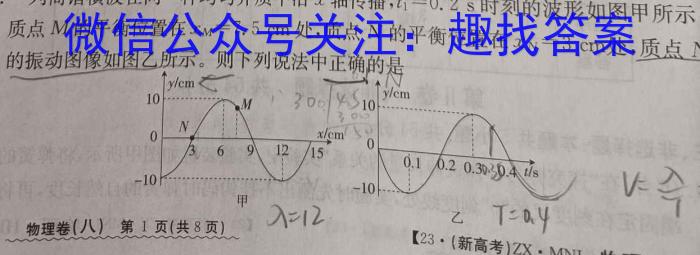 一列简谐横波在同一种均匀介质中沿x轴传播,t₁=0.2 s时刻的波形如图甲所示
质点M的平衡位置在 7.5 cm处,质点N的平衡位置在 3 cm处,质点N
微信公众号关注:趣找答案
的振动图像如图乙所示。则下列说法中正确的是
y/cm
10
M
N
0
3 6 9 12 15
x/cm
-10
甲
λ=12
y/cm
N
10
0
0.1 0.2 0.3 0.4 t/s
-10
乙
T=0.4
V=λ/T
300
45
300
150
物理卷(八) 第1页(共8页)
【23·(新高考)ZX·MNJ